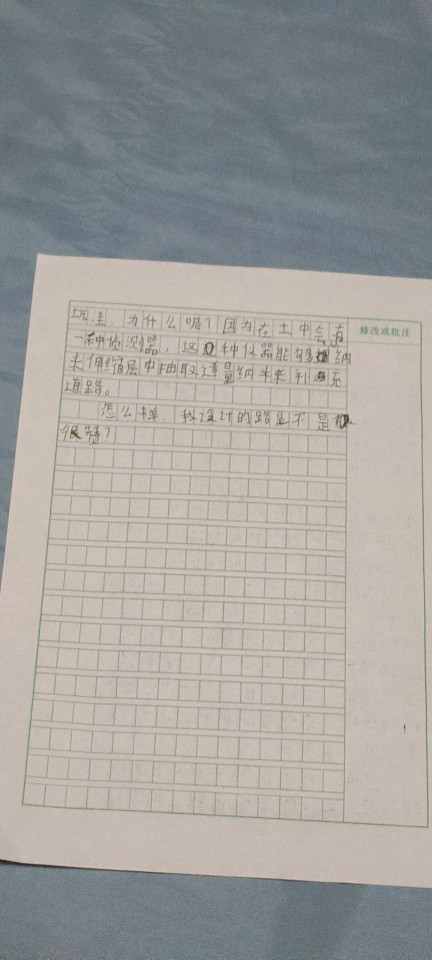 修改或批注
坑洼。为什么呢?因为在土中会有
一种侦测器,这种仪器能够从纳
米压缩层中抽取适量纳米来补充
道路。
怎么样,我设计的路是不是
很赞?